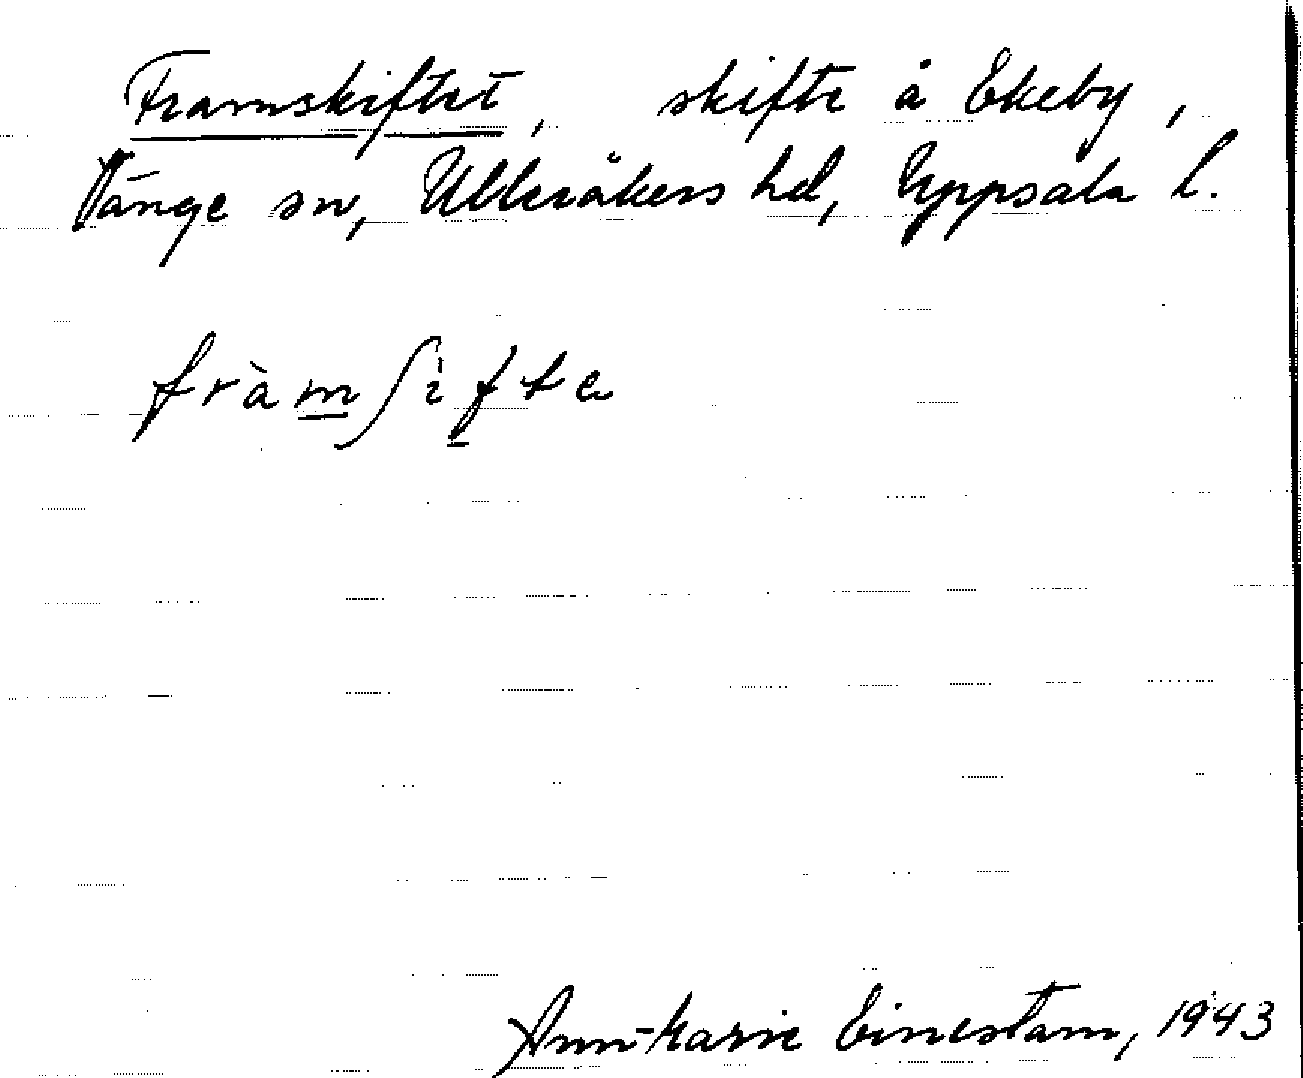 Framskiftet, skifte å Ekeby,
Vänge sn, Ulleråkers hd, Uppsala l.
fràmʃìfte
Ann-Marie Einestam, 1943